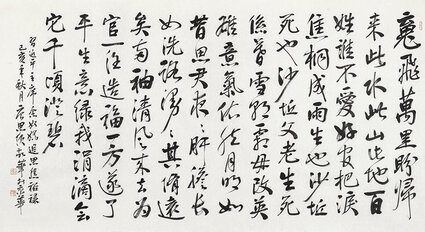 魂飛萬里盼歸
來此水此山此地百
姓誰不愛好官把淚
焦桐成雨生也沙坵
死也沙坵父老生死
係暮雪朝霜毋改英
雄意氣依然月明如
昔思君夜夜肝膽長
如洗路漫漫其脩遠
矣兩袖清風来去為
官一任造福一方遂了
平生意緑我涓滴會
它千頃澄碧
習近平主席念奴嬌追思焦裕禄
己亥年秋月